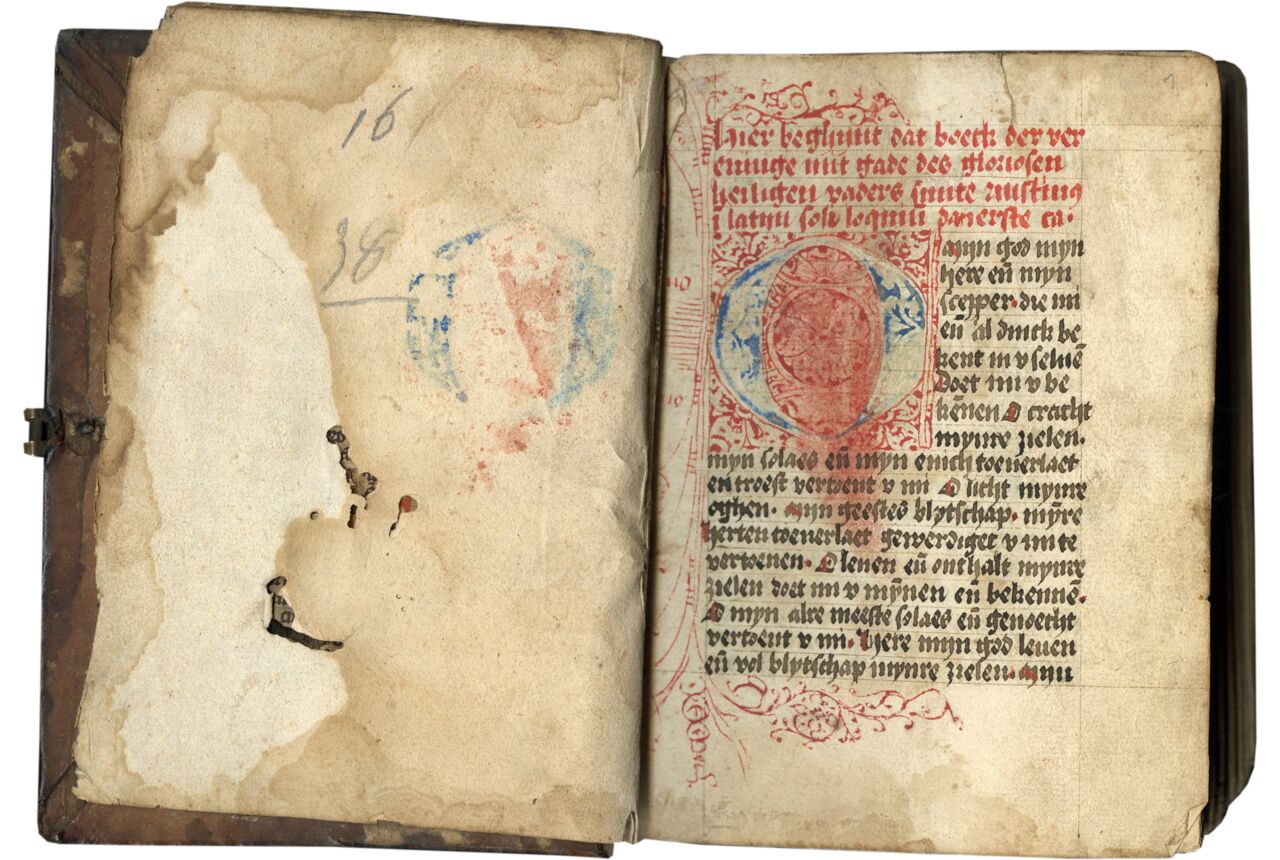 16
38
1
Hier beghint dat boeck der ver
eninge mit gade des gloriosen
heiligen vaders sinte Austinus
i latijn soliloquiu dat erste ca.
O mijn god mijn
here eñ mijn
scepper. die mi
eñ al dinck be
kent in v seluē
Doet mi v be
kēnen O cracht
mynre zielen.
myn solaes eñ mijn enich toeuerlaet
en troest vertoent v mi O licht mynre
oghen. mijn geestes blytschap. mȳre
herten toeuerlaet gewerdiget v mi te
vertoenen. O leuen eñ onthalt mynre
zielen doet mi v mȳnen eñ bekennē.
O mijn alre meeste solaes eñ genoecht
vertoent v mi. Here mijn god leuen
eñ vol blytschap mynre zielen. mijn